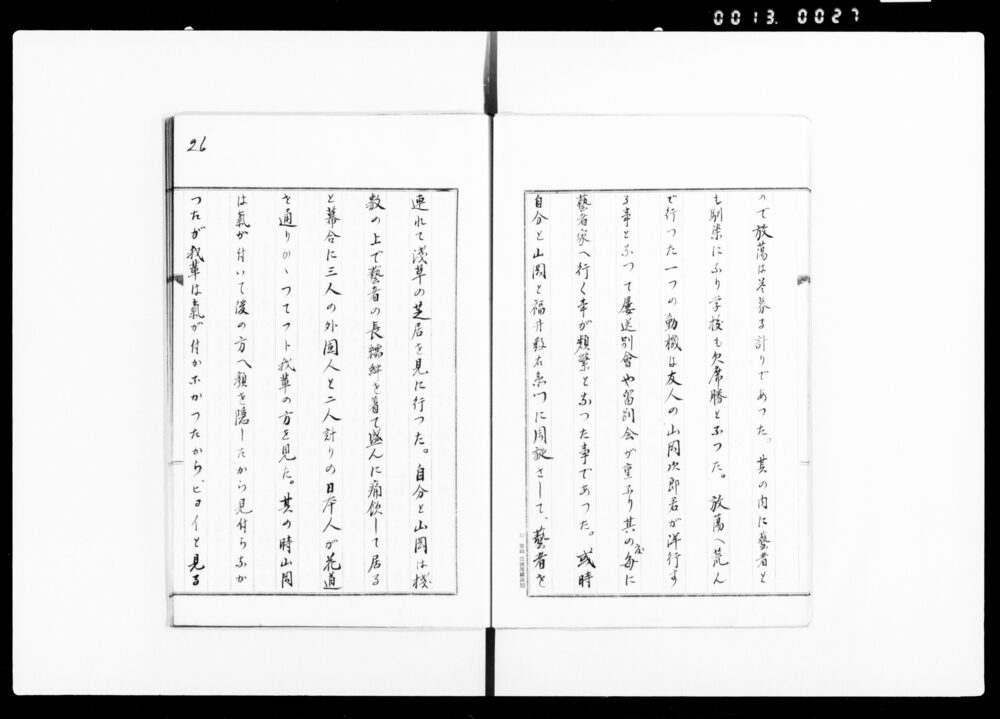 0013.0027
ので放蕩は益募る計りであつた。其の内に藝者と
も馴染になり学校も欠席勝となつた。放蕩へ荒ん
で行つた一つの動機は友人の山岡次郎君が洋行す
る事となつて屡送別會や留別会が重なり其の毎度に
藝者家へ行く事が頻繁となつた事であつた。或時
自分と山岡と福井数右衛門に周旋さして、藝者を
26
連れて浅草の芝居を見に行つた。自分と山岡は桟
敷の上で藝者の長繻絆を着て盛んに痛飲して居る
と幕合に三人の外国人と二人計りの日本人が花道
を通りかゝつてフト我輩の方を見た。其の時山岡
は氣が付いて後の方へ顔を隠したから見付らなか
つたが我輩は氣が付かなかつたからピヨイと見る